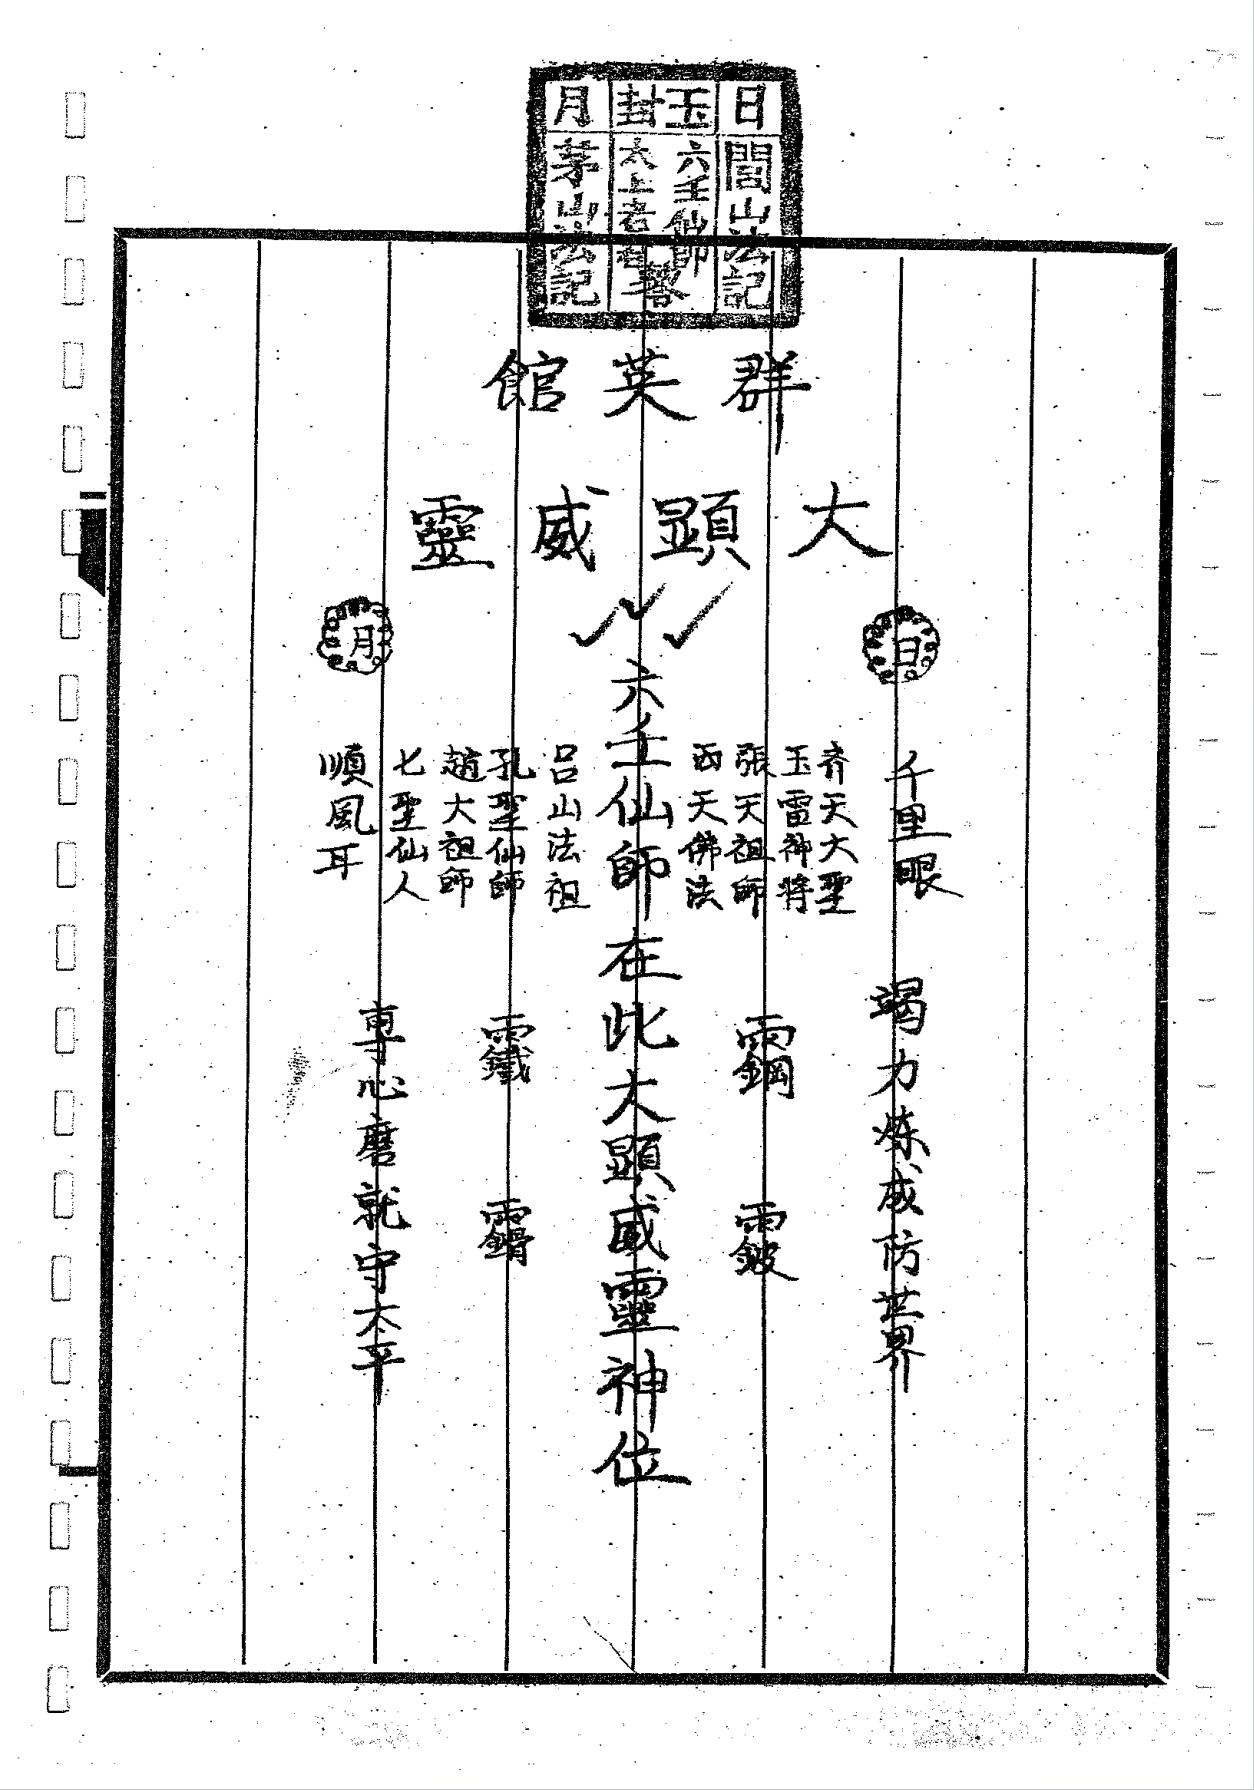 日 閭山法記
玉 六壬仙師
封 太上老君
月 茅山法記
群英館
大顯威靈
日
月
千里眼
齐天大聖
玉雷神將
張天祖師
西天佛法
六壬仙師在此大顯威靈神位
呂山法祖
孔聖仙師
趙大祖師
七聖仙人
順風耳
竭力炼成防世界
專心磨就守太平